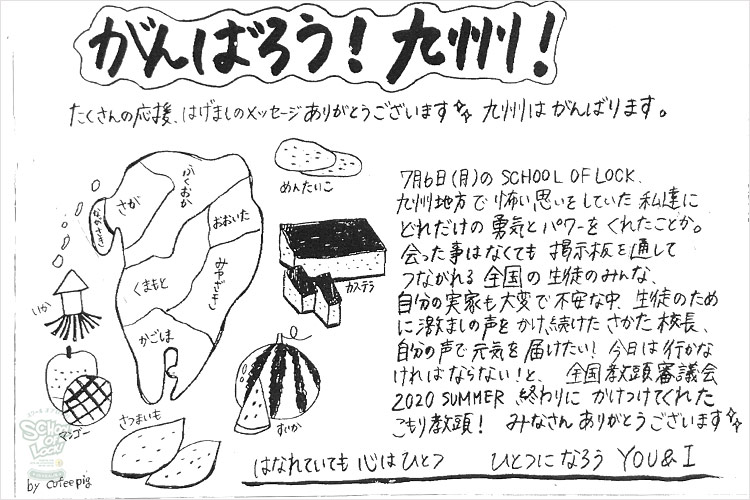 がんばろう！九州！
たくさんの応援、はげましのメッセージありがとうございます 九州はがんばります。
ふくおか
さが
ながさき
おおいた
くまもと
みやざき
かごしま
めんたいこ
カステラ
いか
マンゴー
さつまいも
すいか
7月6日(月)の SCHOOL OF LOCK.
九州地方で怖い思いをしていた私達に
どれだけの勇気とパワーをくれたことか。
会った事はなくても掲示板を通して
つながれる全国の生徒のみんな、
自分の実家も大変で不安な中、生徒のため
に激ましの声をかけ続けたさかた校長、
自分の声で元気を届けたい！今日は行かな
ければならない！と、全国教頭審議会
2020 SUMMER 終わりにかけつけてくれた
こもり教頭！ みなさんありがとうございます
はなれていても心はひとつ ひとつになろう YOU&I
SCHOOL OF LOCK!
by cuteepig